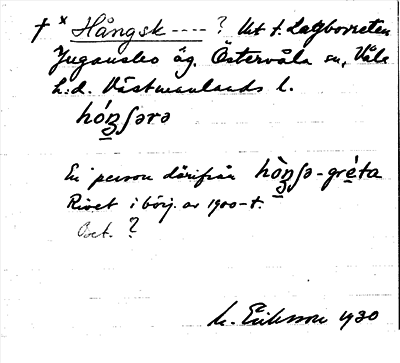 † × Hångsk---- ? Ut t. Lagbovreten
Jugansbo äg. Östervåla sn, Våla
h:d. Västmanlands l.
hóŋʃərə
En person därifrån hòŋʃə-gréta
Rivet i börj. av 1900-t.
Bet. ?
M. Eriksson 1930